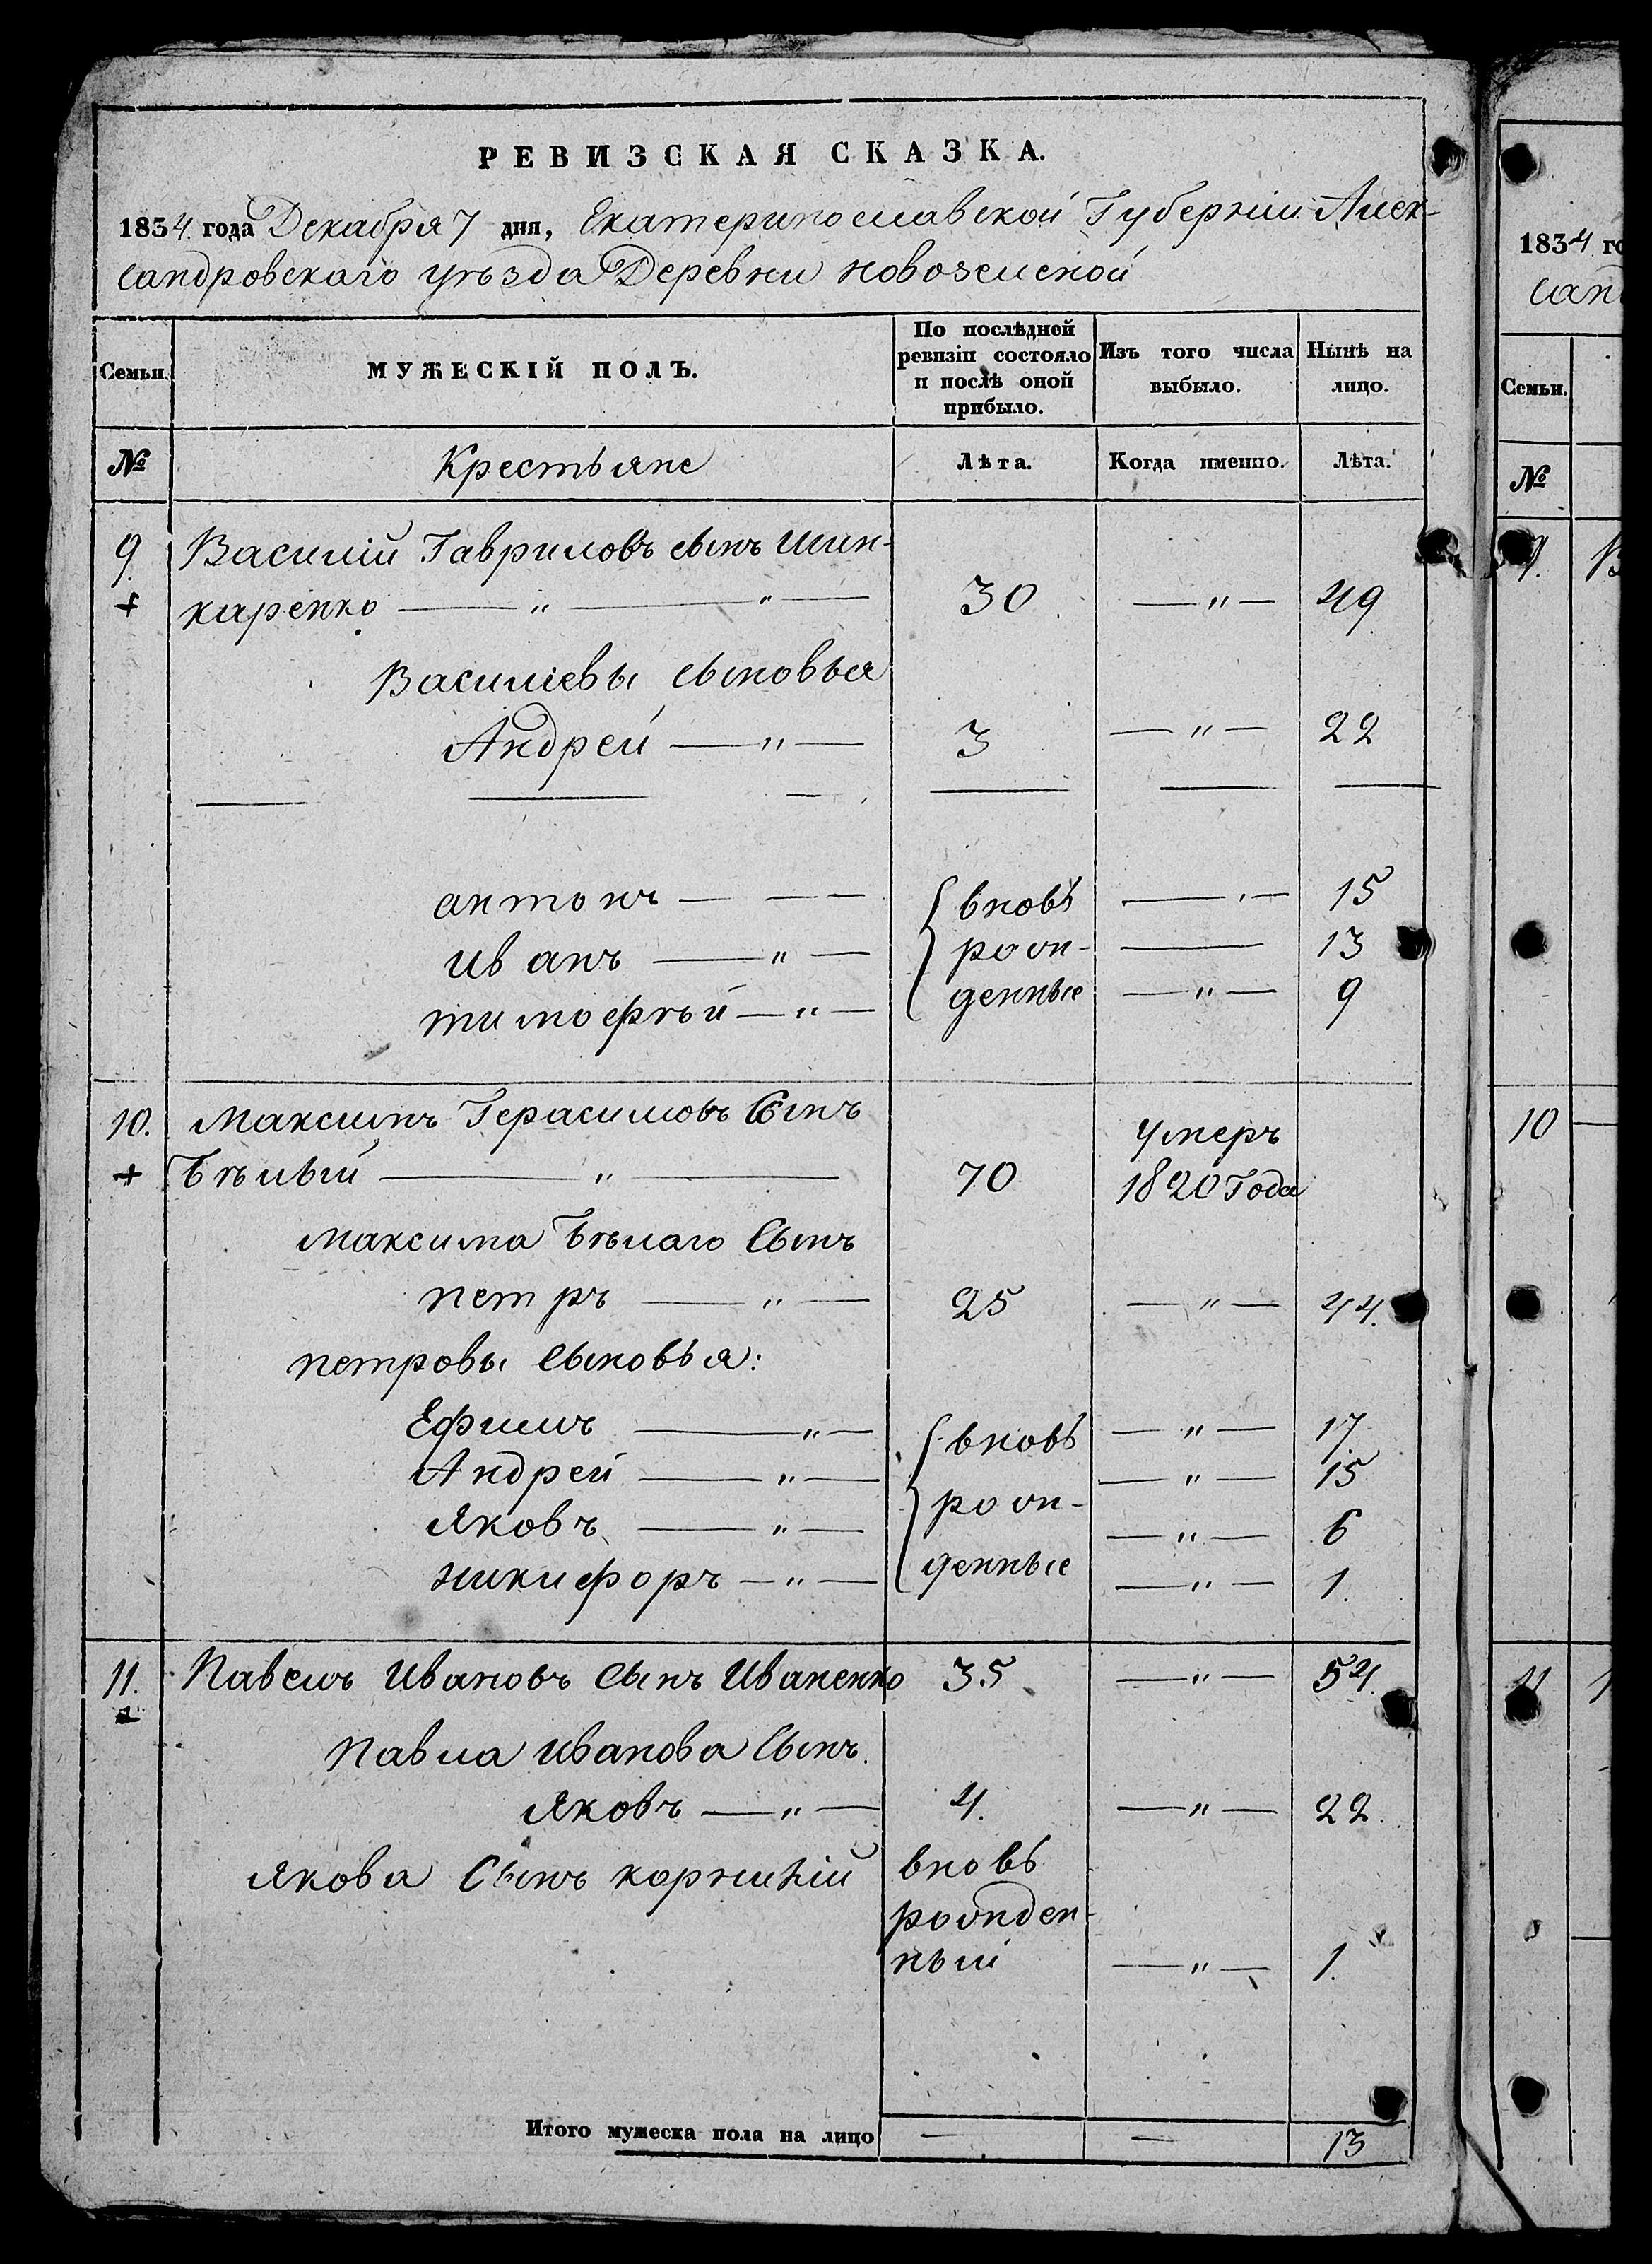 РЕВИЗСКАЯ СКАЗКА.
1834. года Декабря 7 дня, Екатеринославской Губерніи Алек-
сандровскаго уѣзда Деревни новоземской
Семьи. МУЖЕСКІЙ ПОЛЪ. По послѣдней ревизіи состояло и послѣ оной прибыло. Изъ того числа выбыло. Нынѣ на лицо.
№ Крестьяне Лѣта. Когда именно. Лѣта.
9. Василій Гавриловъ сынъ шин-
+ каренко — " — " — 30 — " — 49
Василіевы сыновья
Андрей — " — 3 — " — 22
антонъ — — — { вновь — " — 15
иванъ — " — рож- — 13
тимофѣй — " — денные — " — 9
10. Максимъ Герасимовъ Сынъ Умеръ
+ Бѣлый — " — 70 1820 Года
Максима Бѣлаго Сынъ
петръ — " — 25 — " — 44.
петровы Сыновья:
Ефимъ — " — { вновь — " — 17
Андрей — " — рож- — " — 15
Яковъ — " — — " — 6
никифоръ — " — денные — " — 1.
11. Павелъ Ивановъ Сынъ Иваненко 35 — " — 54.
Павла иванова Сынъ.
Яковъ — " — 4. — " — 22.
Якова Сынъ корнилій вновь
рожден-
ный — " — 1.
Итого мужеска пола на лицо — — 13
1834 го
сан
Семьи.
№
9. В
10
11